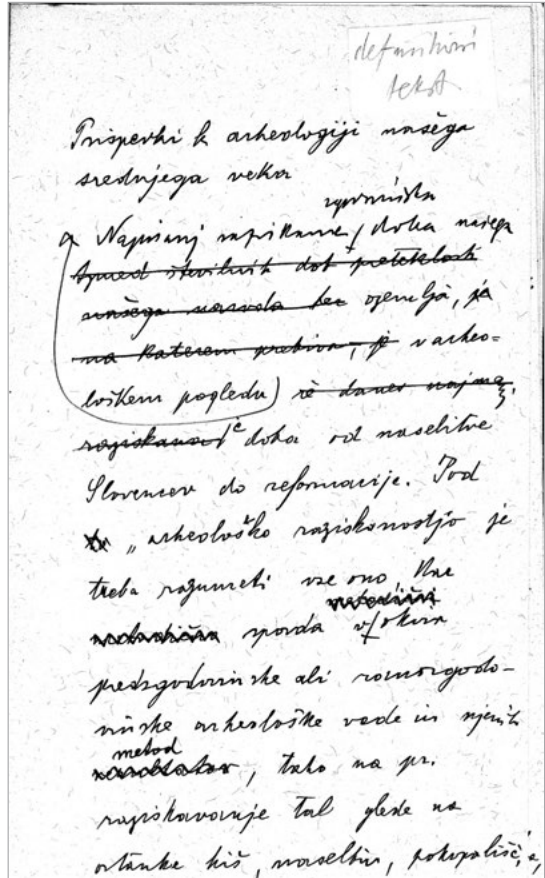 definitivni
tekst
Prispevki k arheologiji našega
srednjega veka
zgodovinska
Najmanj raziskana doba našega
Izmed številnih dob preteklosti
našega naroda ter ozemlja, je
na katerem prebiva, je v arheo-
loškem pogledu še danes najmanj
raziskana je doba od naselitve
Slovencev do reformacije. Pod
„arheološko raziskanostjo je
treba razumeti vse ono, kar
spada v okvir
predzgodovinske ali
arheološke vede in njenih
metod
, tako na pr.
raziskavanje tal glede na
ostanke hiš, naselbin, pokopališč,